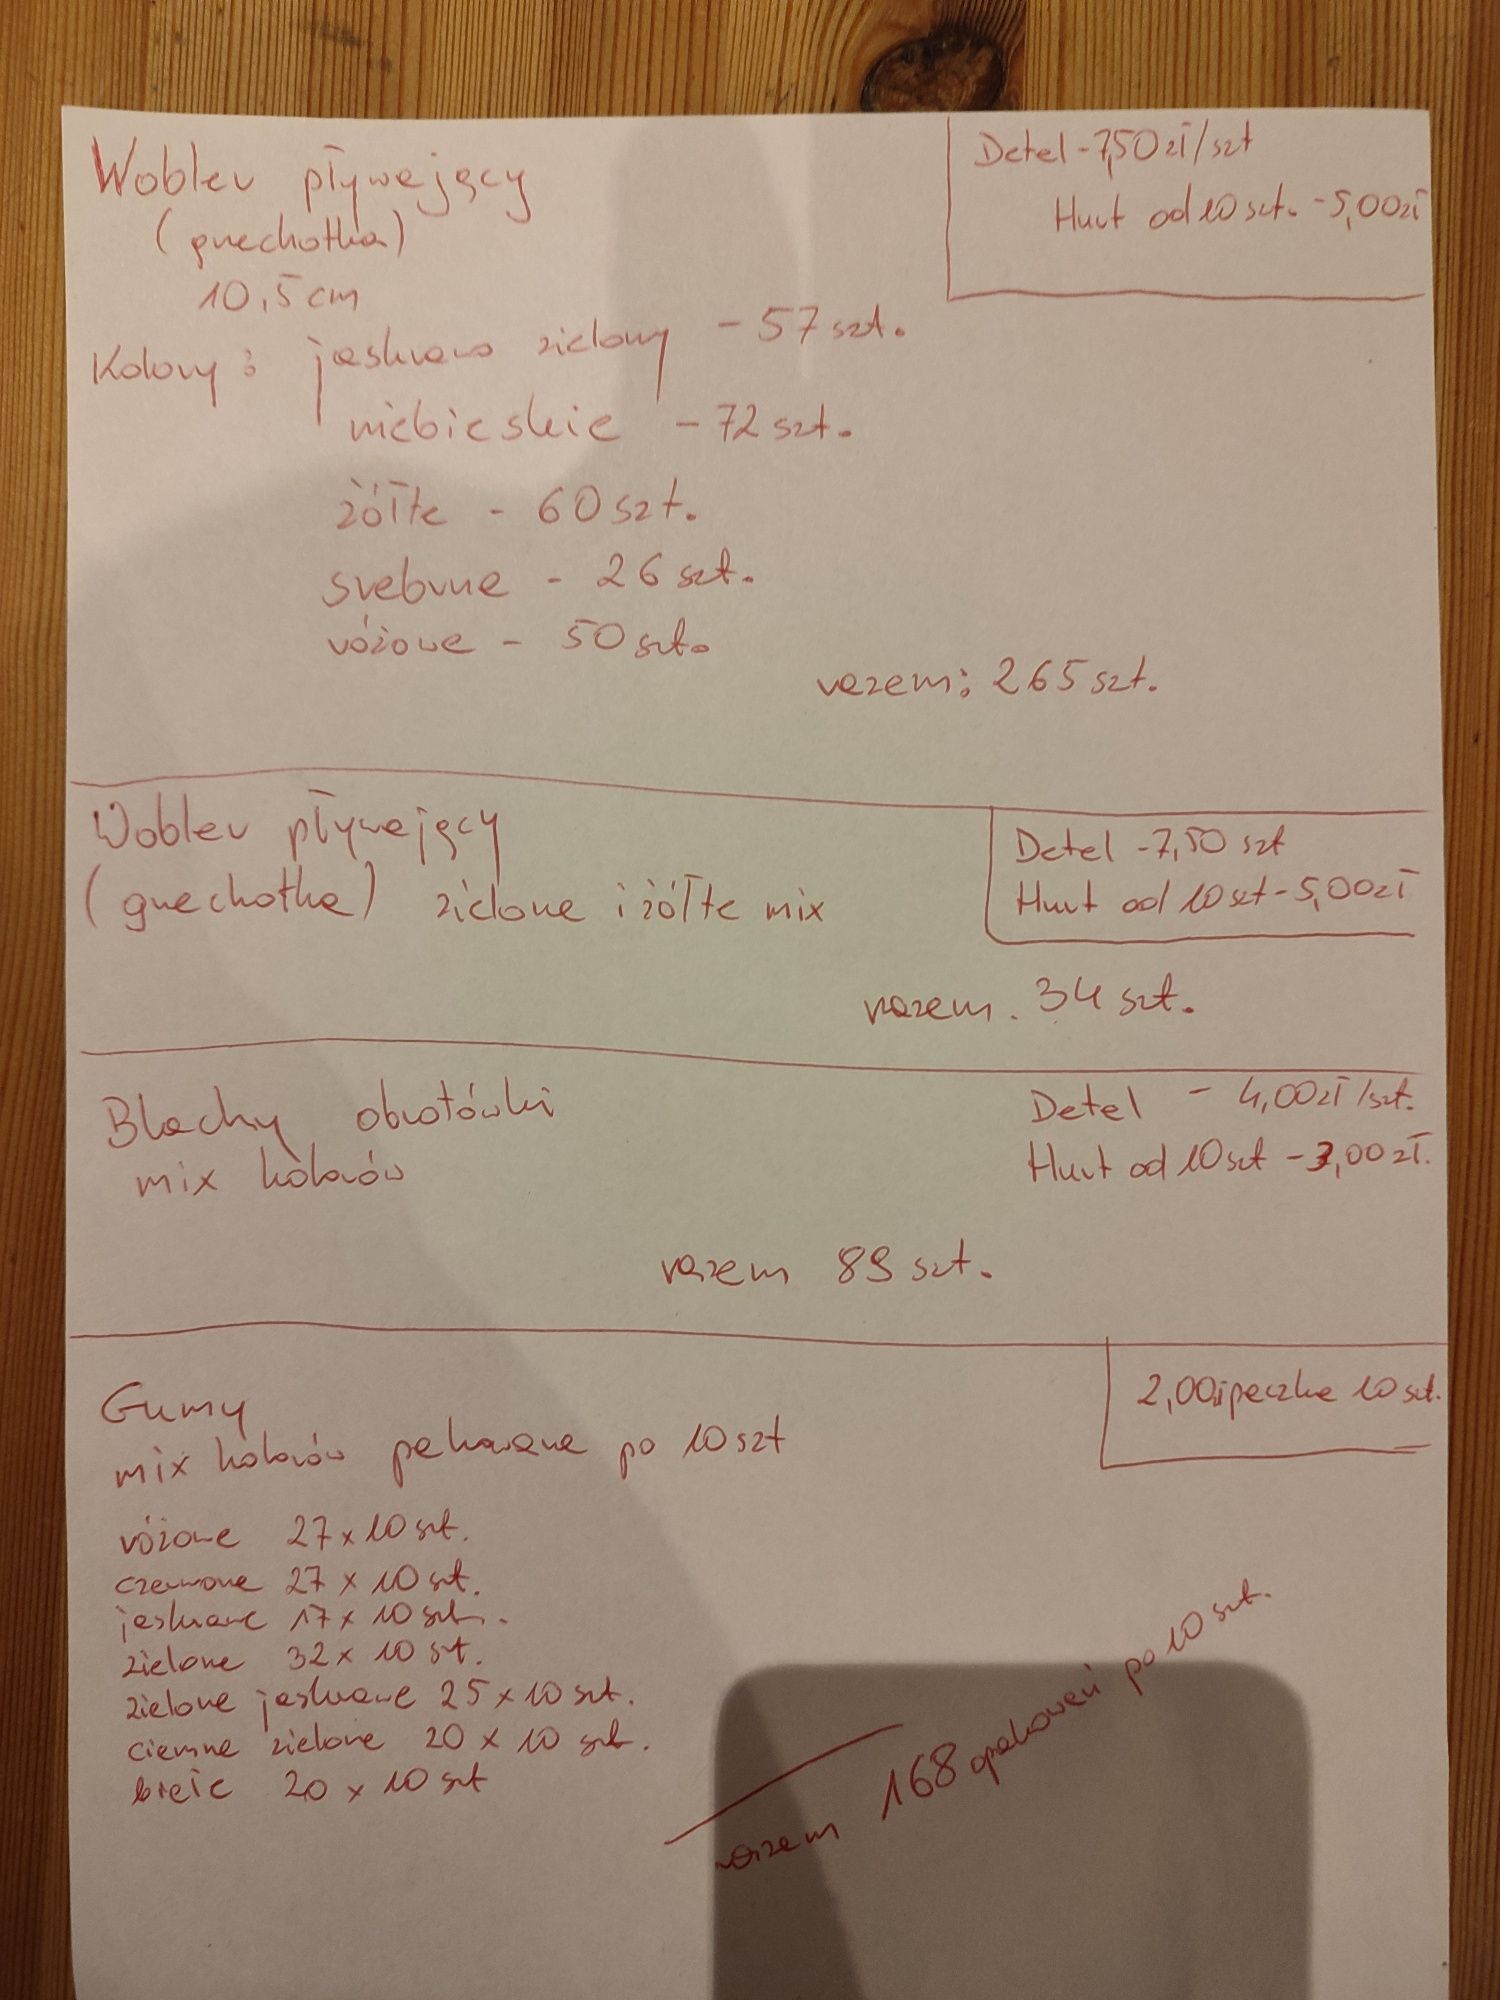 Wobler pływający
(grzechotka)
10,5 cm
Detal - 7,50 zł/szt
Hurt od 10 szt. - 5,00 zł
Kolory: jaskrawo zielony - 57 szt.
niebieskie - 72 szt.
żółte - 60 szt.
srebrne - 26 szt.
różowe - 50 szt.
razem: 265 szt.
Wobler pływający
(grzechotka) zielone i żółte mix
Detal - 7,50 szt
Hurt od 10 szt - 5,00 zł
razem. 34 szt.
Blachy obrotówki
mix kolorów
Detal - 4,00 zł/szt.
Hurt od 10 szt - 3,00 zł.
razem 89 szt.
Gumy
mix kolorów pakowane po 10 szt
2,00 zł paczka 10 szt.
różowe 27 x 10 szt.
czerwone 27 x 10 szt.
jaskrawe 17 x 10 szt.
zielone 32 x 10 szt.
zielone jaskrawe 25 x 10 szt.
ciemne zielone 20 x 10 szt.
białe 20 x 10 szt
razem 168 opakowań po 10 szt.